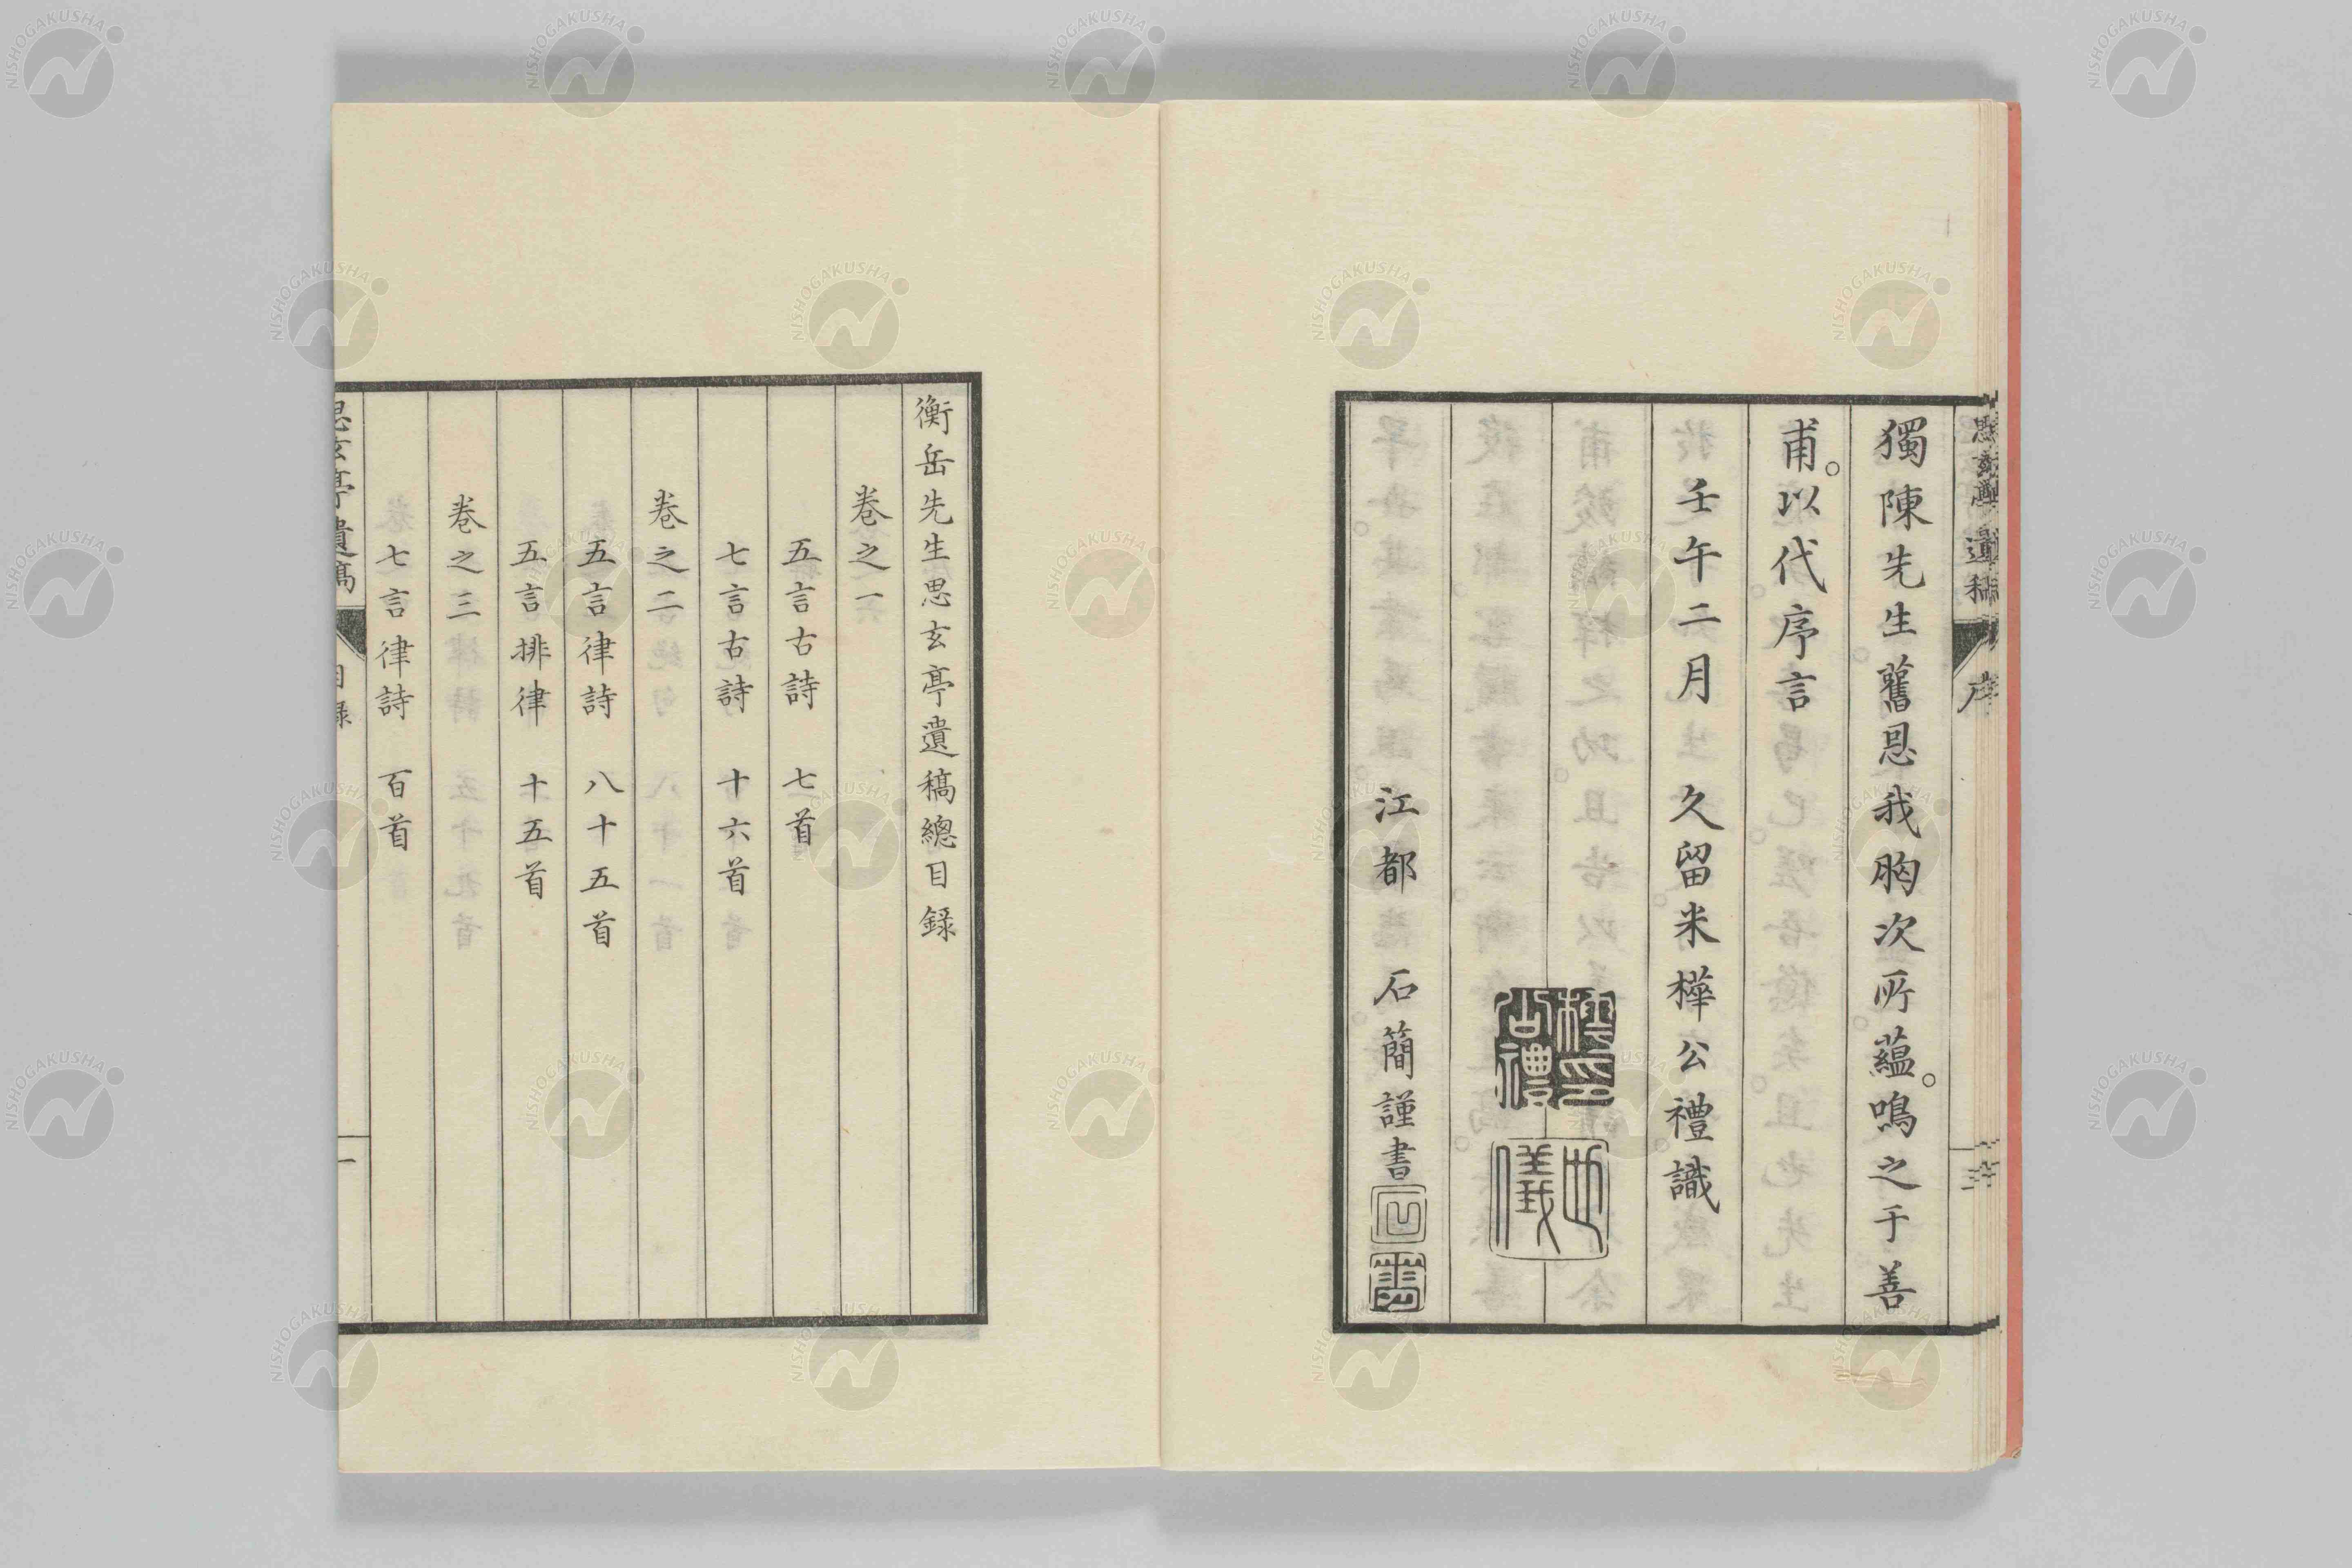 思玄亭遺稿 序
獨陳先生舊恩我胸次所蘊。鳴之于善
甫。以代序言
壬午二月 久留米樺公禮識
江都 石簡謹書
衡岳先生思玄亭遺稿總目錄
卷之一
五言古詩 七首
七言古詩 十六首
卷之二
五言律詩 八十五首
五言排律 十五首
卷之三
七言律詩 百首
思玄亭遺稿 目錄 一
NISHOGAKUSHA